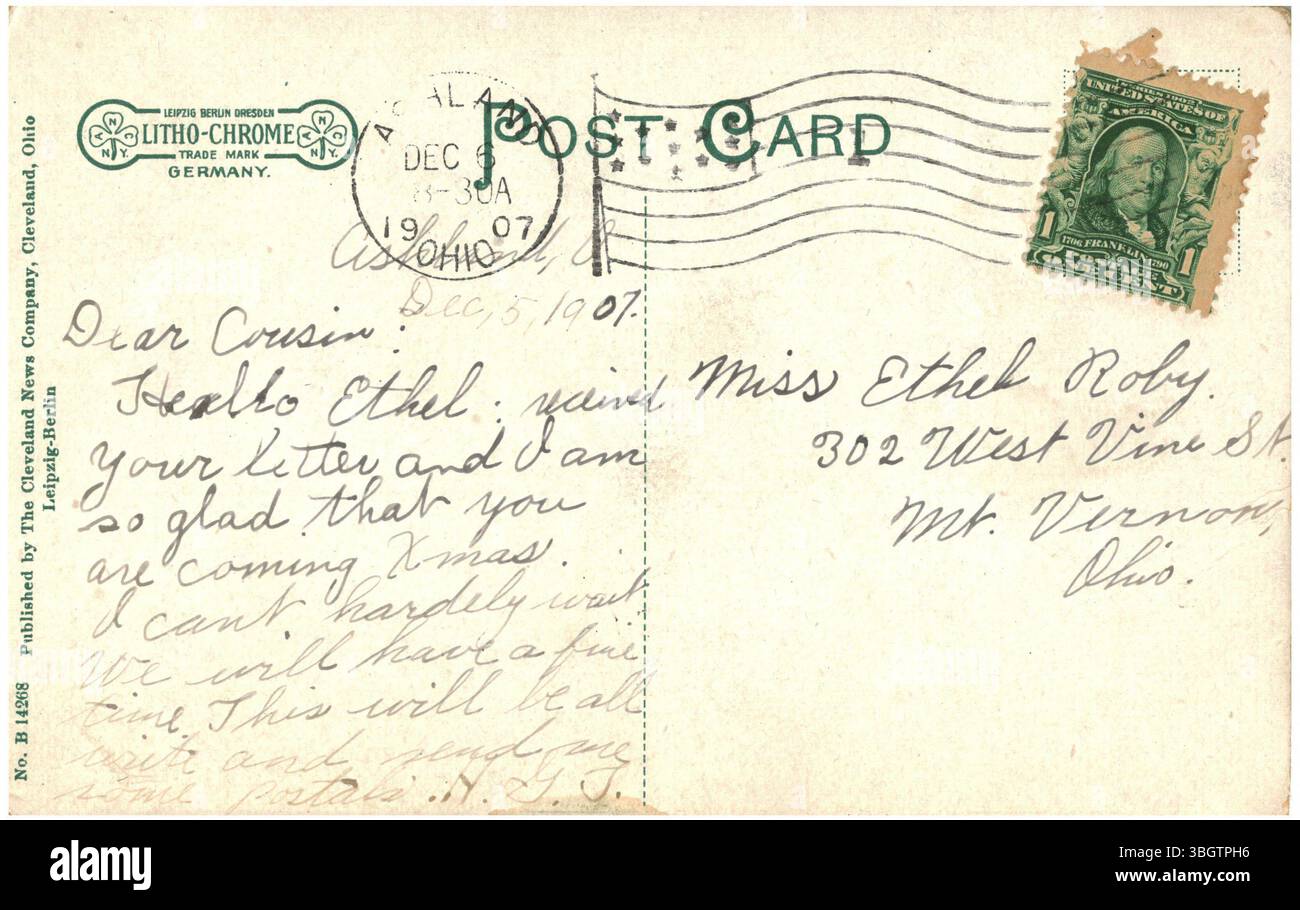 LEIPZIG BERLIN DRESDEN
LITHO-CHROME
TRADE MARK
GERMANY.
N N.Y.
N N.Y.
POST CARD
ASHLAND
DEC 6
8-30A
1907
OHIO
SERIES 1902
UNITED STATES OF
AMERICA
1706 FRANKLIN 1790
1 1
Ashland, O.
Dec, 5, 1907.
Dear Cousin:
Hello Ethel: recived
your letter and I am
so glad that you
are coming Xmas.
I can't hardely wait
We will have a fine
time. This will be all
write and send me
some postals. H. G. T.
Miss Ethel Roby.
302 West Vine St.
Mt. Vernon,
Ohio.
No. B 14268 Published by The Cleveland News Company, Cleveland, Ohio
Leipzig-Berlin
alamy
Image ID: 3BGTPH6
www.alamy.com